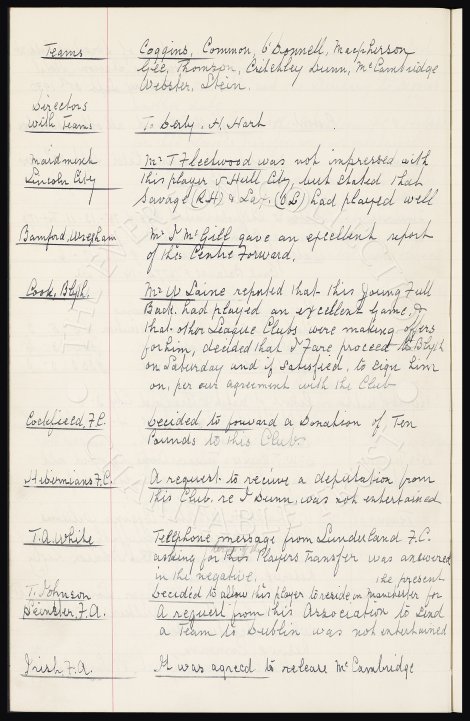 Teams Coggins, Common, O'Donnell, Macpherson
Gee, Thomson, Critchley Dunn, McCambridge
Webster, Stein.
Directors
with Teams To Derby. H. Hart
Maidment Mr T Fleetwood was not impressed with
Lincoln City this player v Hull City, but stated that
Savage (R.H) & Lax. (O.L) had played well
Bamford, Wrexham Mr J McGill gave an excellent report
of this Centre Forward.
Cook, Blyth. Mr W Laine reported that this young Full
Back had played an excellent game, &
that other League Clubs were making offers
for him, decided that J Fare proceed to Blyth
on Saturday and if satisfied, to sign him
on, per our agreement with the Club
Cockfield, F.C. Decided to forward a Donation of Ten
Pounds to this Club.
Hibernians F.C. A request to receive a deputation from
this Club re J Dunn, was not entertained
T.A. White Telephone message from Sunderland F.C.
asking for this Players Transfer was answered
in the negative. the present
T. Johnson Decided to allow this player to reside in Manchester for
Leinster F.A. A request from this Association to send
a Team to Dublin was not entertained
Irish F.A. It was agreed to release McCambridge